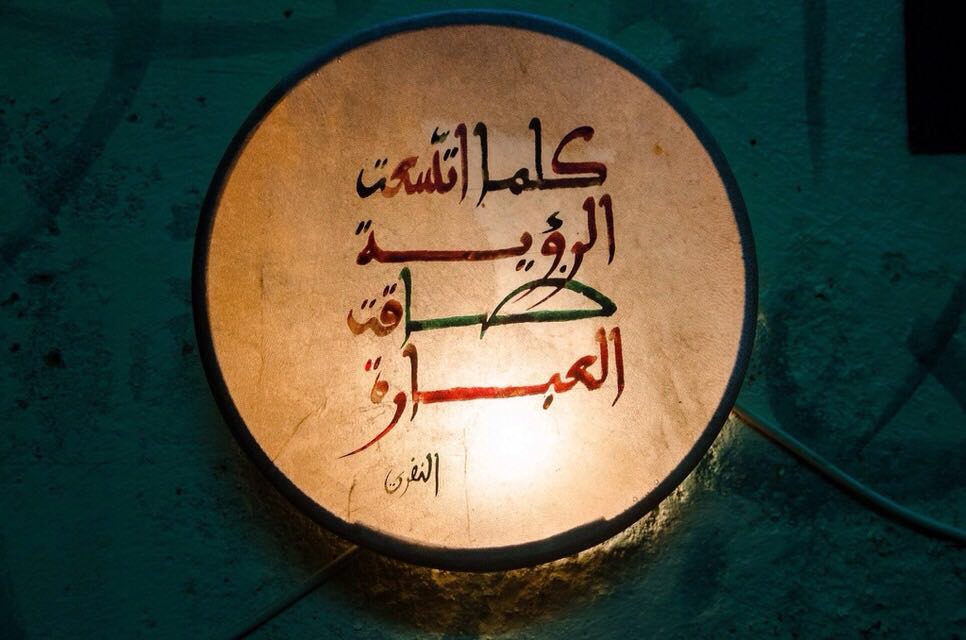 كلما اتّسعت
الرؤية
ضاقت
العبارة
النفري